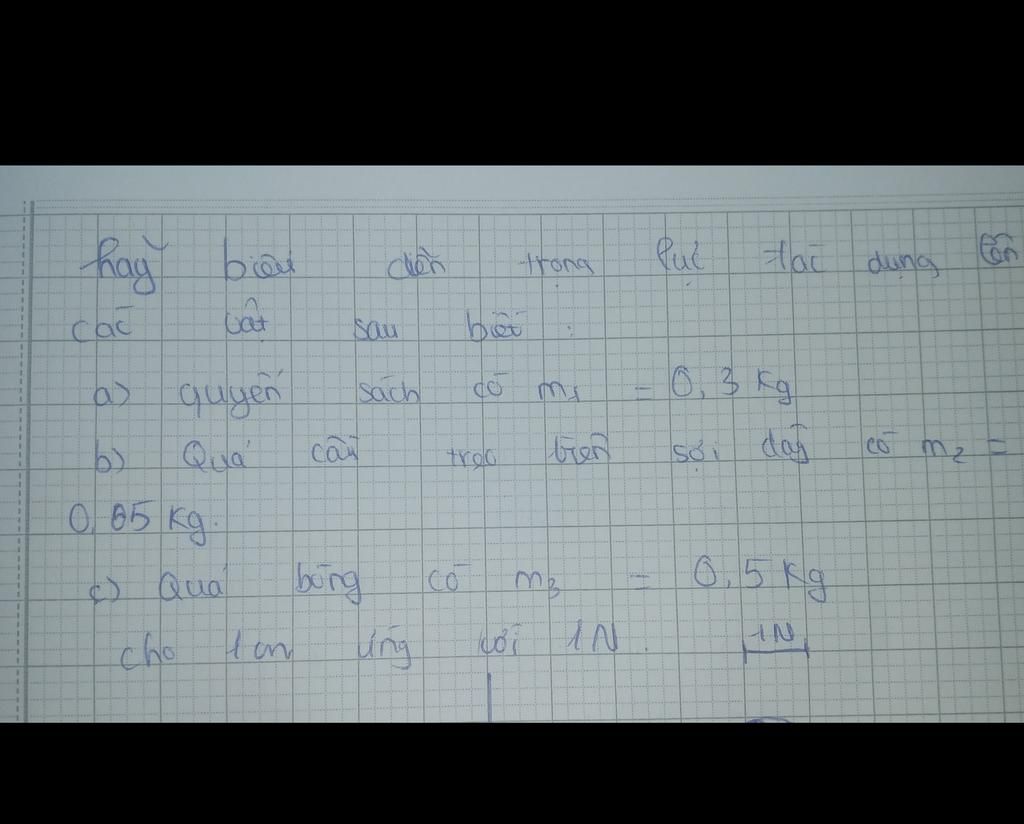 hãy biểu diễn trọng lực tác dụng lên
các vật sau biết :
a) quyển sách có m₁ = 0,3 Kg
b) Quả cầu treo trên sợi dây có m₂ =
0,05 Kg.
c) Quả bóng có m₃ = 0,5 Kg
cho 1 cm ứng với 1N. 1N